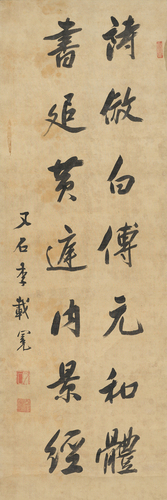 詩倣白傅元和體
書㧌黃庭內景經
又石李載冕